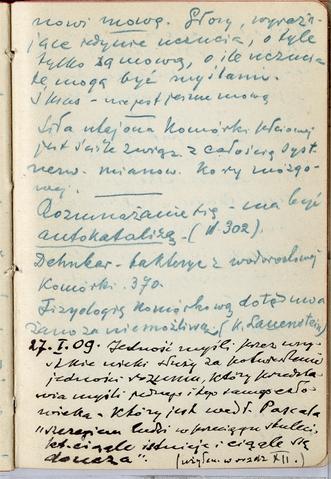 nowi mową. Głosy, wyraża-
jące jedynie uczucia, o tyle
tylko są mową, o ile uczucia
te mogą być myślami.
nie jest jeszcze mową
Siła utajona Komórki
jest ściśle związ. z całością syst.
nerw. mianow. Kory mózgo-
wej.
Rozmnażanie się - ma być
autokatalizą. - (II 302).
bakterye z wodorostowej
Komórki. 370.
Fizyologię Komórkową dotąd
za niemożliwą
27.I.09. Jedność myśli, przez wszy-
stkie wieki służy za potwierdzenie
jedności rozumu, który przedsta-
wia myśli jednego i tego samego czło-
wieka - który jest wedł. Pascala
"szeregiem ludzi w przeciągu stuleci,
ciągle istnieje i ciągle się
XII.)